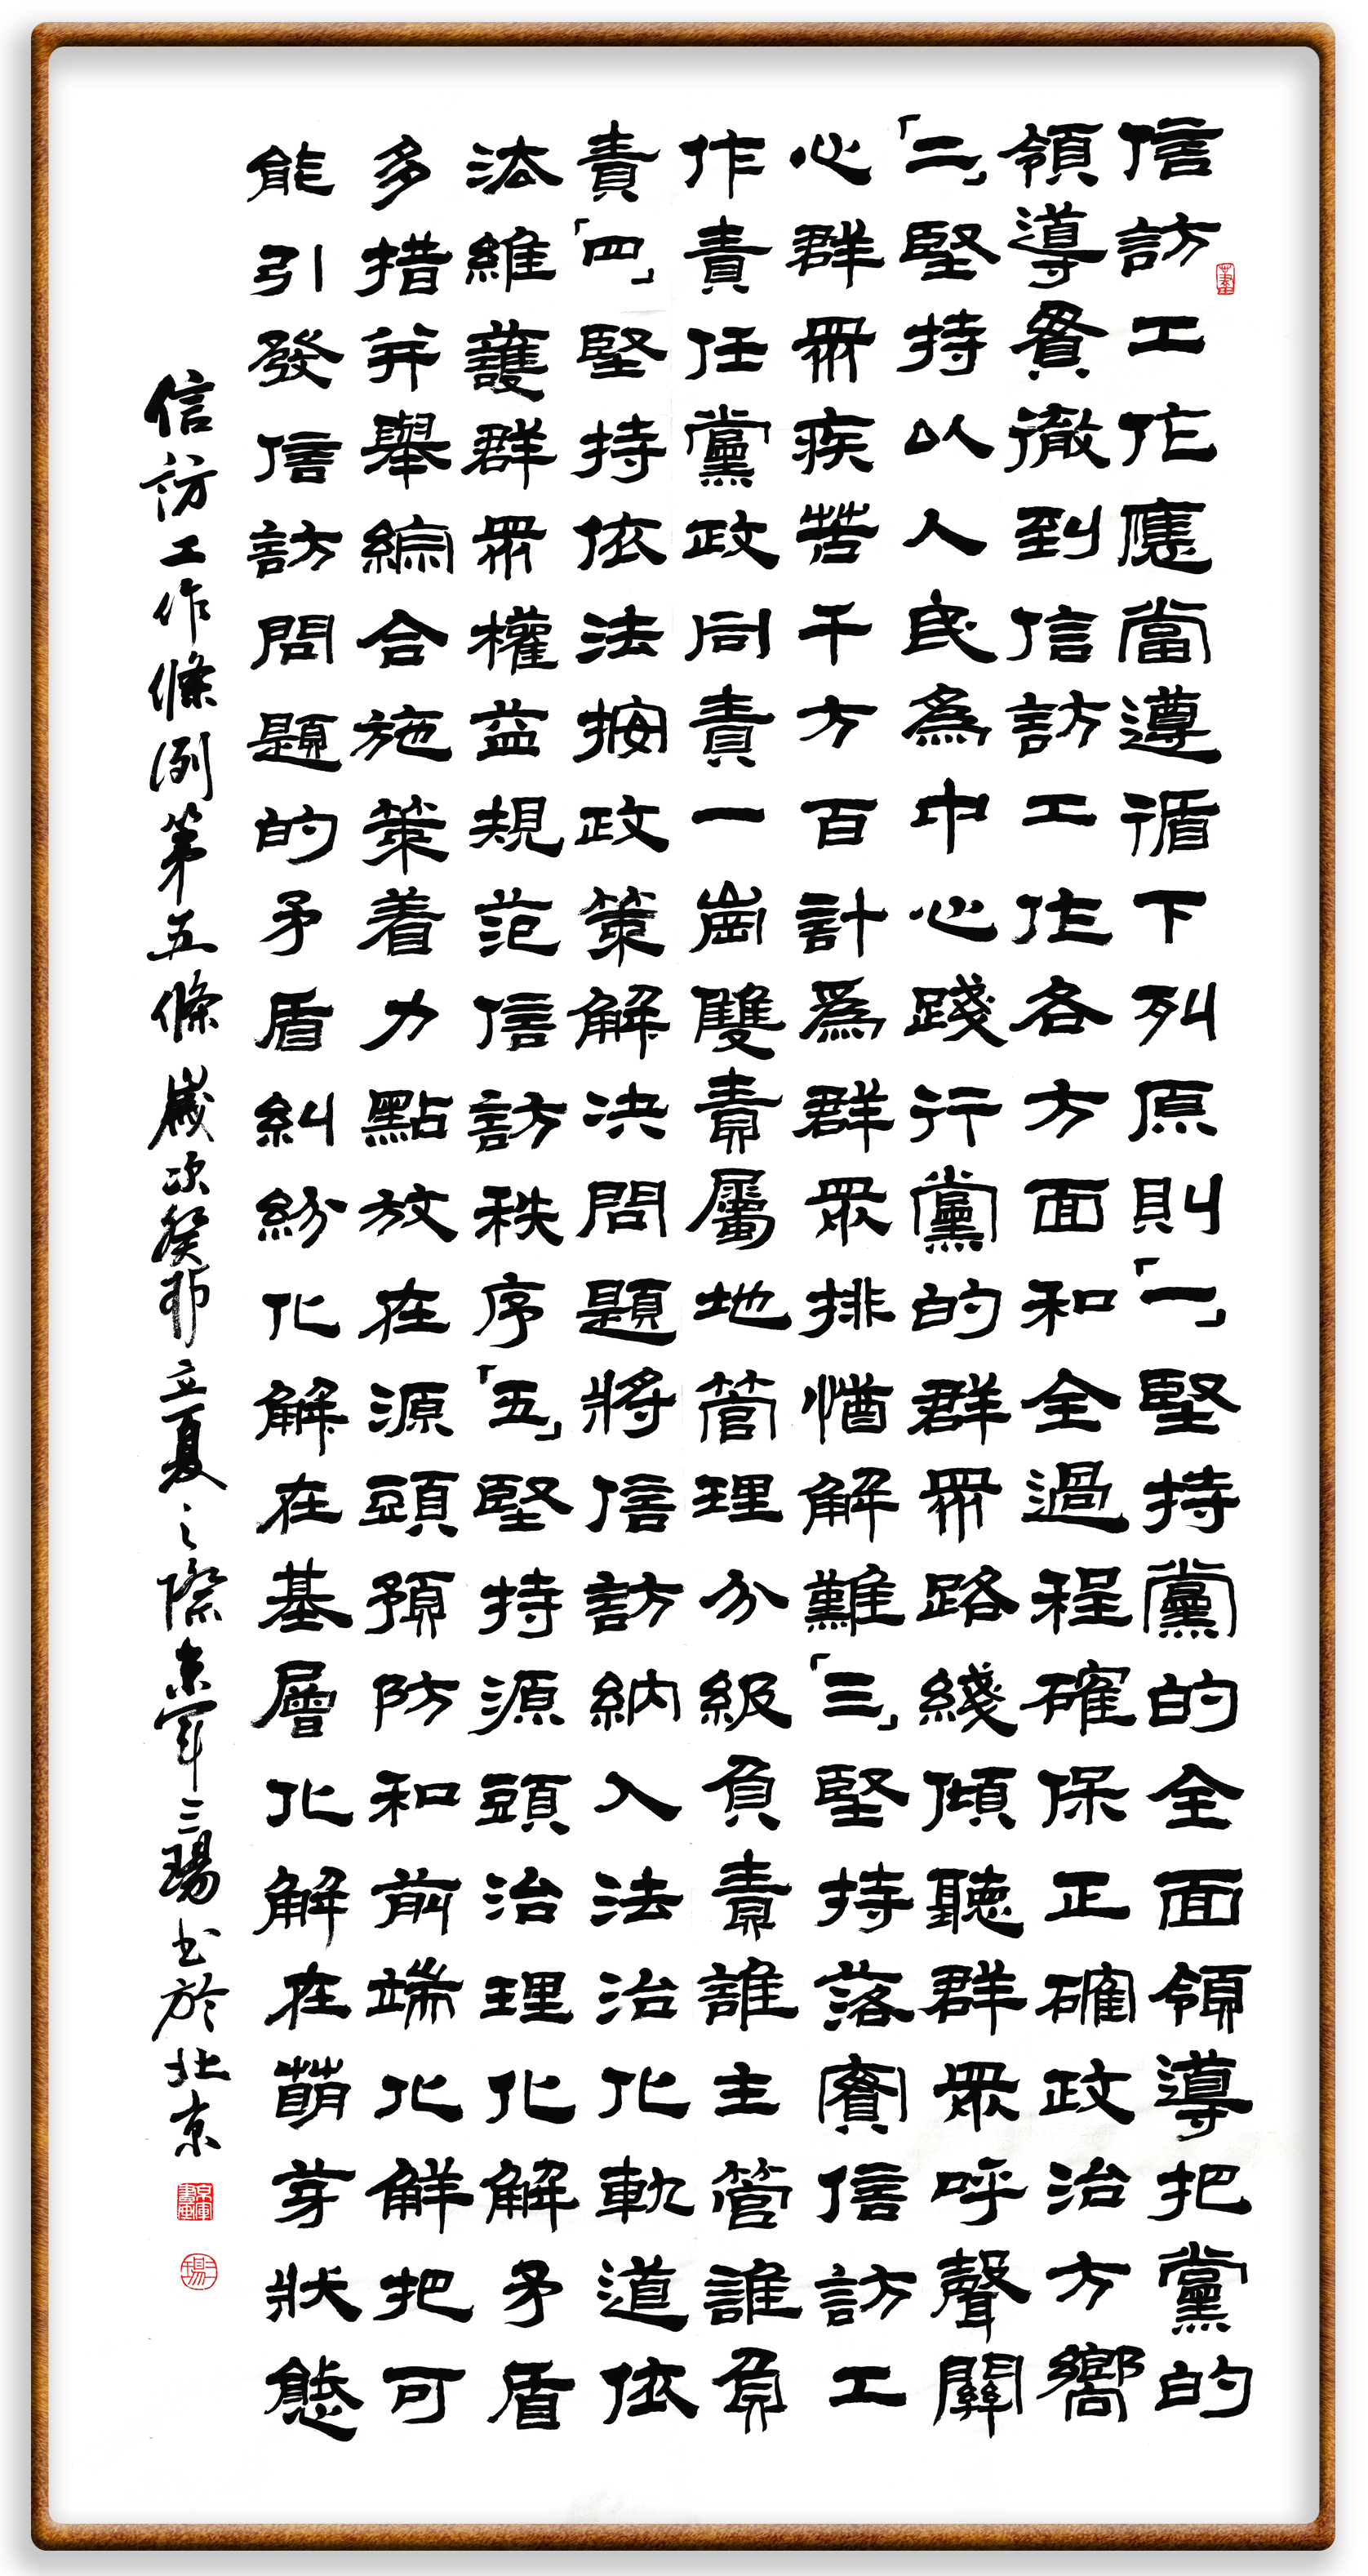 信訪工作應當遵循下列原則「一」堅持黨的全面領導把黨的
領導貫徹到信訪工作各方面和全過程確保正確政治方嚮
「二」堅持以人民為中心踐行黨的群眾路綫傾聽群眾呼聲關
心群眾疾苦千方百計爲群眾排憂解難「三」堅持落實信訪工
作責任黨政同責一崗雙責屬地管理分級負責誰主管誰負
責「四」堅持依法按政策解決問題將信訪納入法治化軌道依
法維護群眾權益規范信訪秩序「五」堅持源頭治理化解矛盾
多措并舉綜合施策着力點放在源頭預防和前端化解把可
能引發信訪問題的矛盾糾紛化解在基層化解在萌芽狀態
信訪工作條例第五條 歲次癸卯立夏之際京軍三瑒书於北京